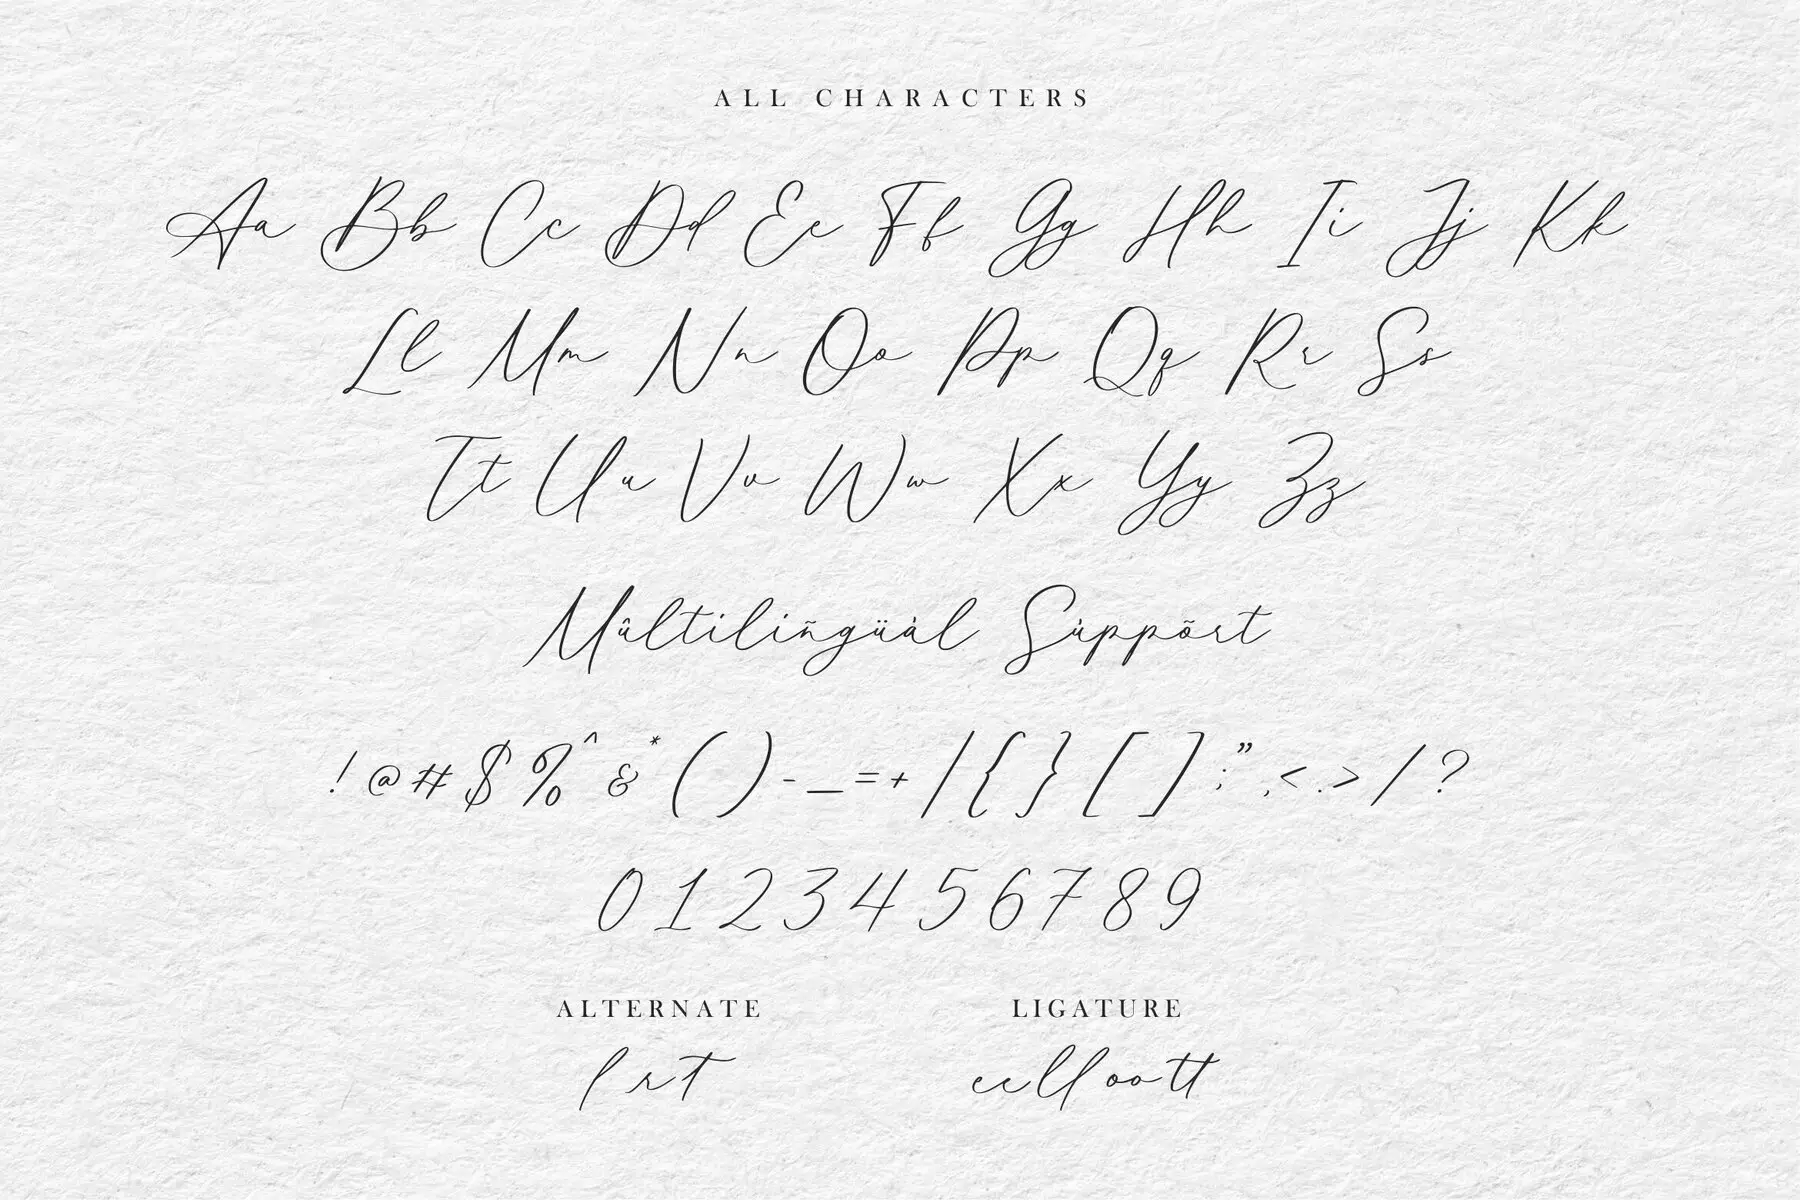 ALL CHARACTERS
Aa Bb Cc Dd Ee Ff Gg Hh Ii Jj Kk
Ll Mm Nn Oo Pp Qq Rr Ss
Tt Uu Vv Ww Xx Yy Zz
Mûltiliñgüàl Sùppõrt
! @ # $ % ^ & * ( ) - _ = + / { } [ ] ; " , < . > / ?
0 1 2 3 4 5 6 7 8 9
ALTERNATE LIGATURE
l r t ee ll oo tt